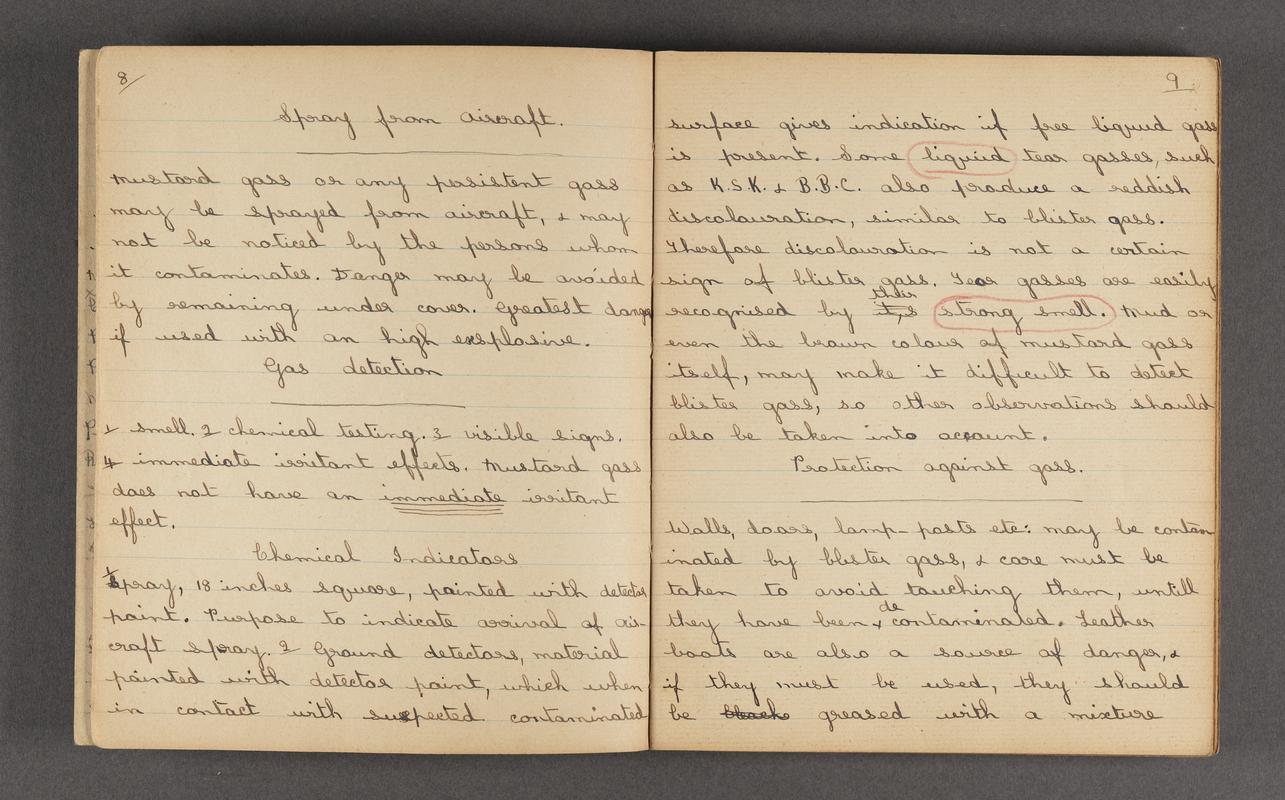 8
Spray from aircraft.
Mustard gass or any persistent gass
may be sprayed from aircraft, & may
not be noticed by the persons whom
it contaminates. Danger may be avoided
by remaining under cover. Greatest danger
if used with an high explosive.
Gas detection
1 smell. 2 chemical testing. 3 visible signs.
4 immediate irritant effects. Mustard gass
does not have an immediate irritant
effect.
Chemical Indicators
1 Spray, 18 inches square, painted with detector
paint. Purpose to indicate arrival of air-
craft spray. 2 Ground detectors, material
painted with detector paint, which when
in contact with suspected contaminated
9
surface gives indication if free liquid gass
is present. Some liquid tear gasses, such
as K.S.K. & B.B.C. also produce a reddish
discolouration, similar to blister gass.
Therefore discolouration is not a certain
sign of blister gass. Tear gasses are easily
their
recognised by it,s strong smell. Mud or
even the brown colour of mustard gass
itself, may make it difficult to detect
blister gass, so other observations should
also be taken into account.
Protection against gass.
Walls, doors, lamp-posts etc: may be contam
inated by blister gass, & care must be
taken to avoid touching them, untill
de
they have been contaminated. Leather
boots are also a source of danger, &
if they must be used, they should
be black greased with a mixture